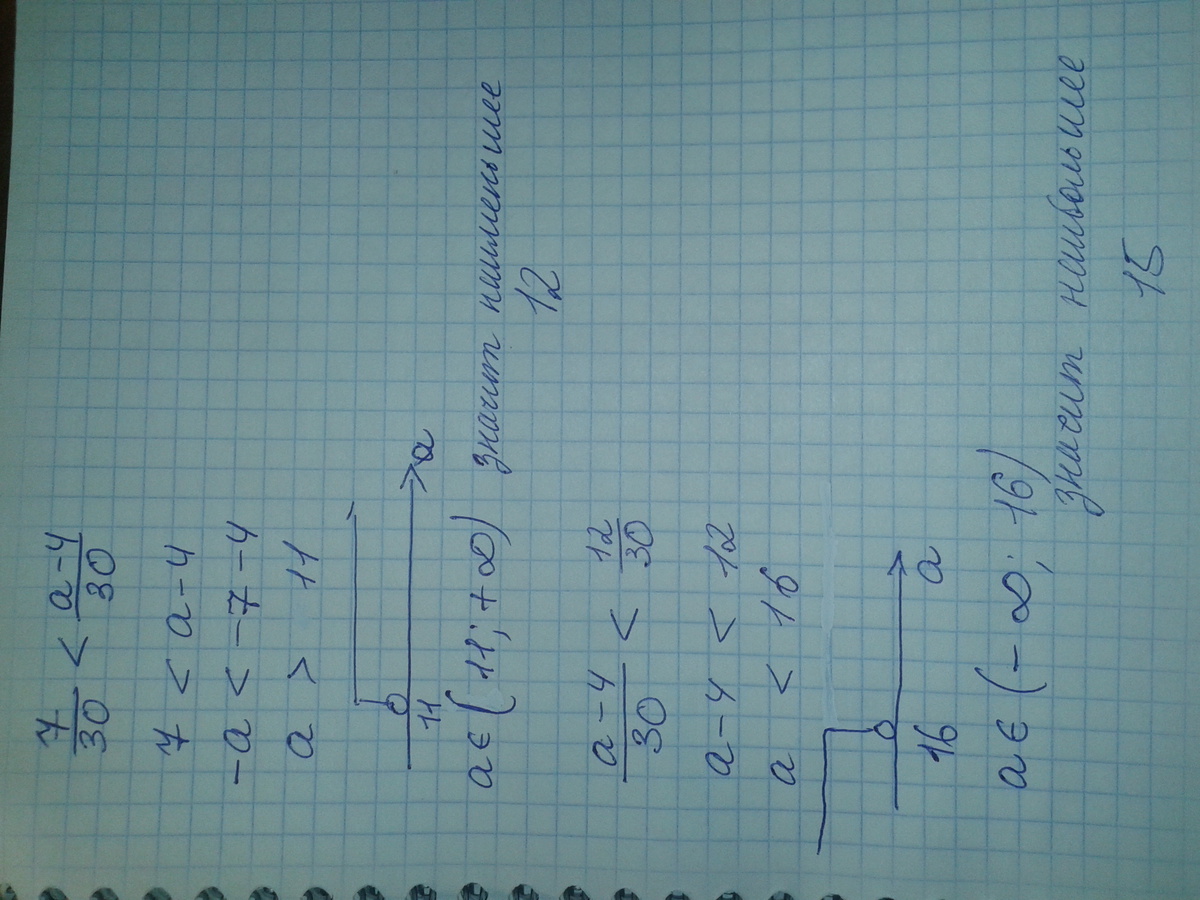 7/30 < a-4/30
7 < a-4
-a < -7-4
a > 11
11 a
a ∈ (11; +∞) значит наименьшее
12
a-4/30 < 12/30
a-4 < 12
a < 16
16 a
a ∈ (-∞; 16)
значит наибольшее
15